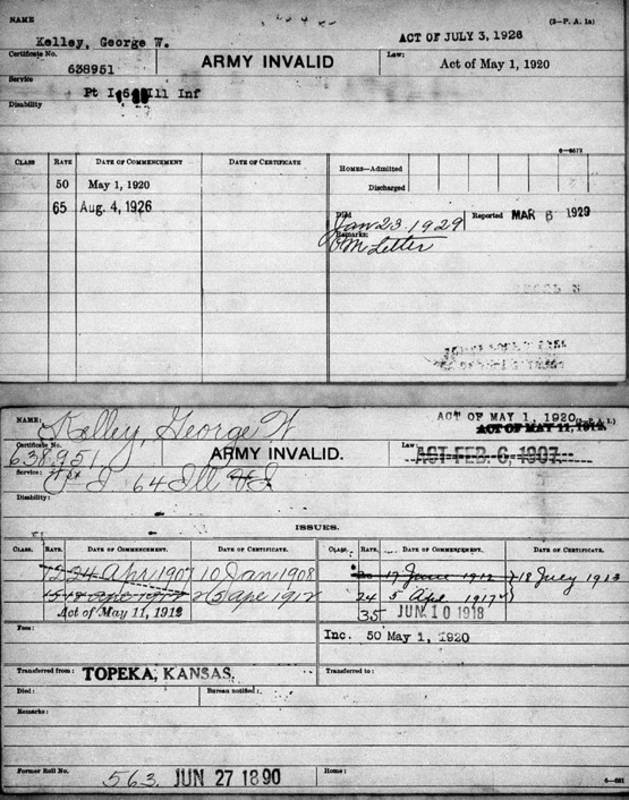 NAME
(3-P. A. 1a)
Kelley, George W.
ACT OF JULY 3, 1926
Certificate No.
638951
ARMY INVALID
Law:
Act of May 1, 1920
Service
Pt I, 64 Ill Inf
Disability
6-6572
CLASS RATE DATE OF COMMENCEMENT DATE OF CERTIFICATE
HOMES—Admitted
Discharged
50 May 1, 1920
65 Aug. 4, 1926
Died
Jan 23. 1929
Reported MAR 6 1929
Remarks:
Letter
NAME:
Kelley, George W
ACT OF MAY 1, 1920
ACT OF MAY 11, 1912.
Certificate No.
638,951
ARMY INVALID.
Law:
ACT FEB. 6, 1907.
Service:
I 64 Ill V I
Disability:
ISSUES.
CLASS. RATE. DATE OF COMMENCEMENT. DATE OF CERTIFICATE.
CLASS. RATE. DATE OF COMMENCEMENT. DATE OF CERTIFICATE.
12 24 Apr 1907 10 Jan 1908
20 17 June 1912 18 July 1913
24 5 Apr 1917
Act of May 11, 1912
35 JUN 10 1918
Fees:
Inc. 50 May 1, 1920
Transferred from: TOPEKA, KANSAS.
Transferred to:
Died:
Bureau notified:
Remarks:
Former Roll No.
563. JUN 27 1890
Home: